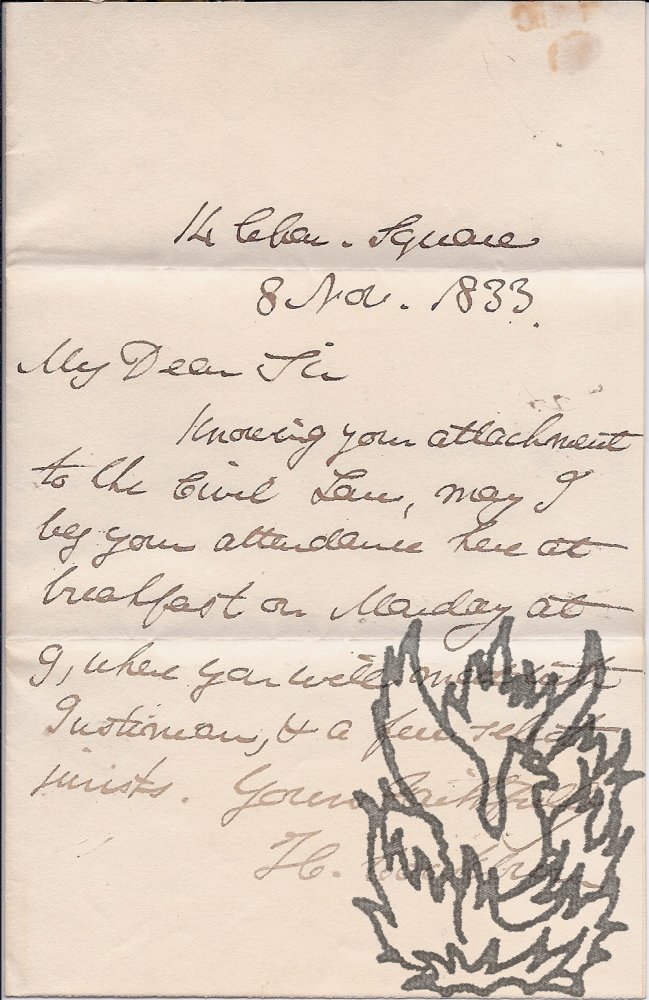 14 Square
8 Nov. 1833.
My Dear Sir
Knowing your attachment
to the Civil Law, may I
beg your attendance here at
breakfast on Monday at
9, where you will meet with
Justinian, & a few select
jurists. Yours faithfully
H.